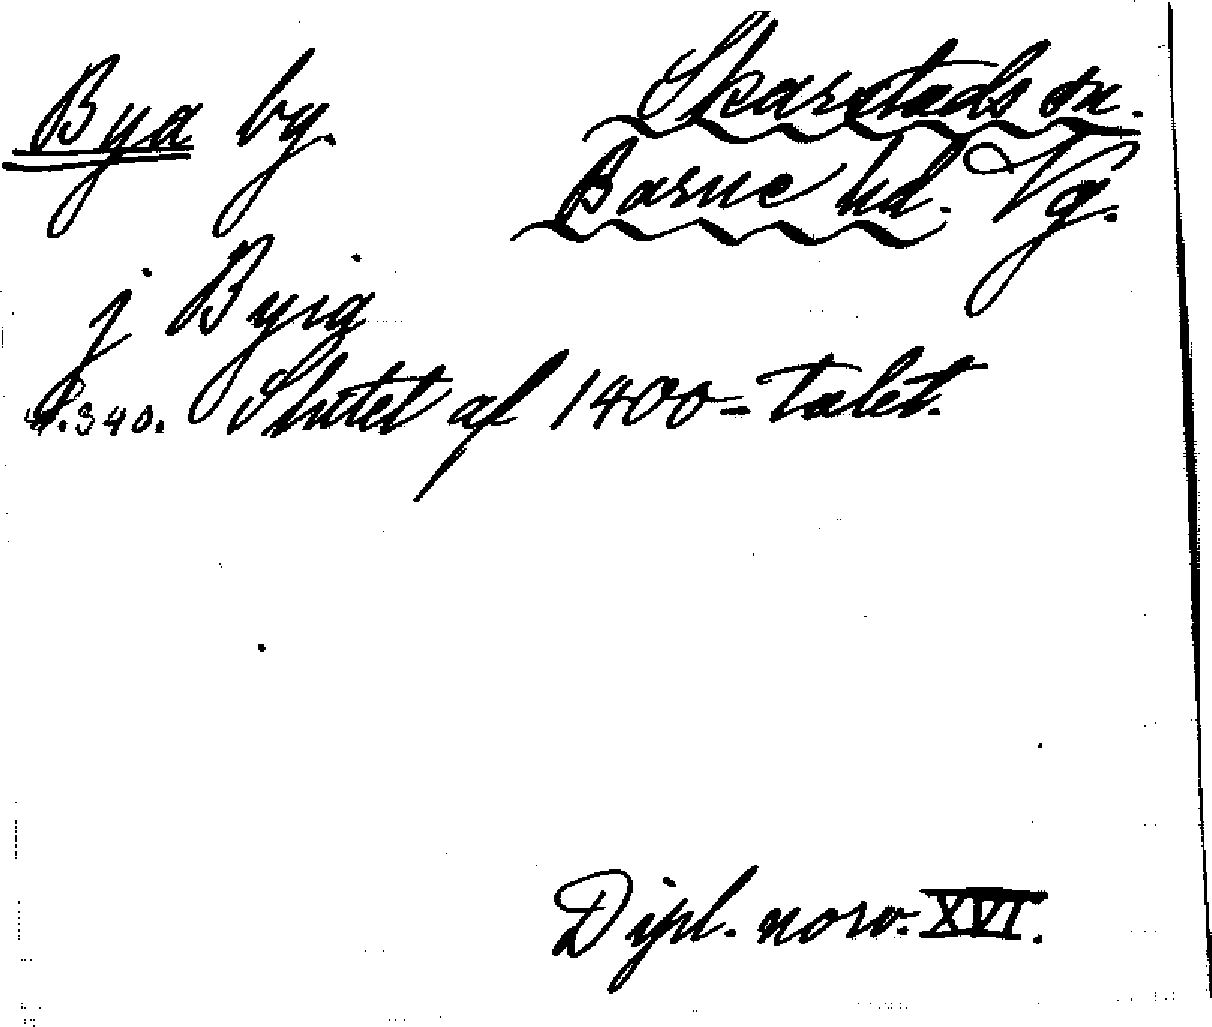 Bya by. Skarstads sn.
Barne hd. Vg.
j Byig
s. 340. Slutet af 1400-talet.
Dipl. norv. XVI.